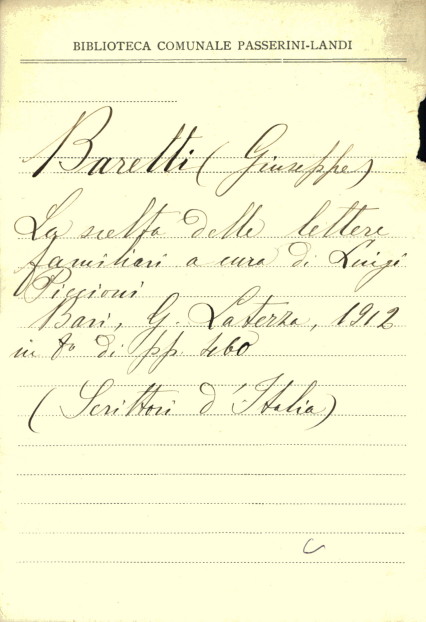 BIBLIOTECA COMUNALE PASSERINI-LANDI
Baretti (Giuseppe)
La scelta delle lettere
familiari a cura di Luigi
Piccioni
Bari, G. Laterza, 1912
in 8º di pp. 460
(Scrittori d'Italia)